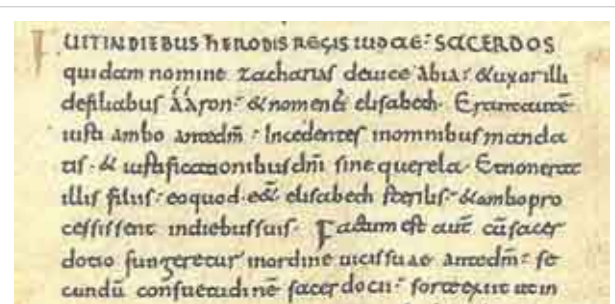 FUIT IN DIEBUS hERODIS REGIS IUDAE· SACERDOS
quidam nomine zacharias deuice abia· & uxor illi
defiliabus ááron· & nomen ei̾ elisabeth· Erant autē
iusti ambo antedm̄· Incedentes inomnibus manda
tis· & iustificationibus dn̄i sine querela· Et non erat
illis filius· eo quod· ess& elisabeth sterilis· & ambo pro
cessissent indiebus suis· Factum est aut̄ cū sacer
dotio fungeretur in ordine uicis suae antedm̄· se
cundū consuetudinē sacerdotii· sorte exiit ut in